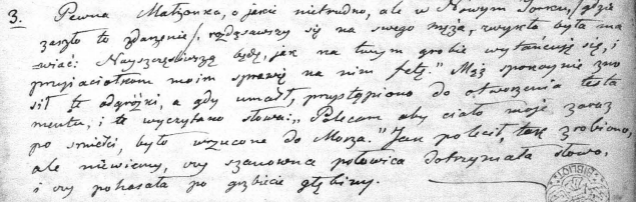 3. Pewna Małżonka, o jakie nietrudno, ale w Nowym Jorku, /gdzie
zaszło to zdarzenie/, rozgniewawszy się na swego męża, zwykła była ma
wiać: Nayszczęśliwszą będę, jak na twym grobie wytańcuję się, i
przyjaciółkom moim sprawię na nim fetę." Mąż spokoynie zno
sił te odgróżki, a gdy umarł, przystąpiono do otworzenia testa
mentu, i te wyczytano słowa: „Polecam aby ciało moje zaraz
po śmierci, było wrzucone do Morza." Jak polecił, tak zrobiono,
ale niewiemy, czy szanowna połowica dotrzymała słowo,
i czy pohasała po grzbiecie głębiny.